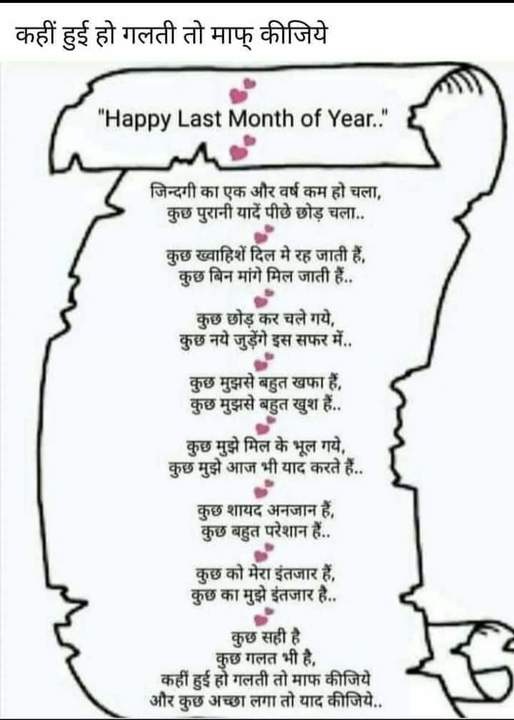 कहीं हुई हो गलती तो माफ् कीजिये
"Happy Last Month of Year.."
जिन्दगी का एक और वर्ष कम हो चला,
कुछ पुरानी यादें पीछे छोड़ चला..
कुछ ख्वाहिशें दिल मे रह जाती हैं,
कुछ बिन मांगे मिल जाती हैं..
कुछ छोड़ कर चले गये,
कुछ नये जुड़ेंगे इस सफर में..
कुछ मुझसे बहुत खफा हैं,
कुछ मुझसे बहुत खुश हैं..
कुछ मुझे मिल के भूल गये,
कुछ मुझे आज भी याद करते हैं..
कुछ शायद अनजान हैं,
कुछ बहुत परेशान हैं..
कुछ को मेरा इंतजार हैं,
कुछ का मुझे इंतजार है..
कुछ सही है
कुछ गलत भी है,
कहीं हुई हो गलती तो माफ कीजिये
और कुछ अच्छा लगा तो याद कीजिये..